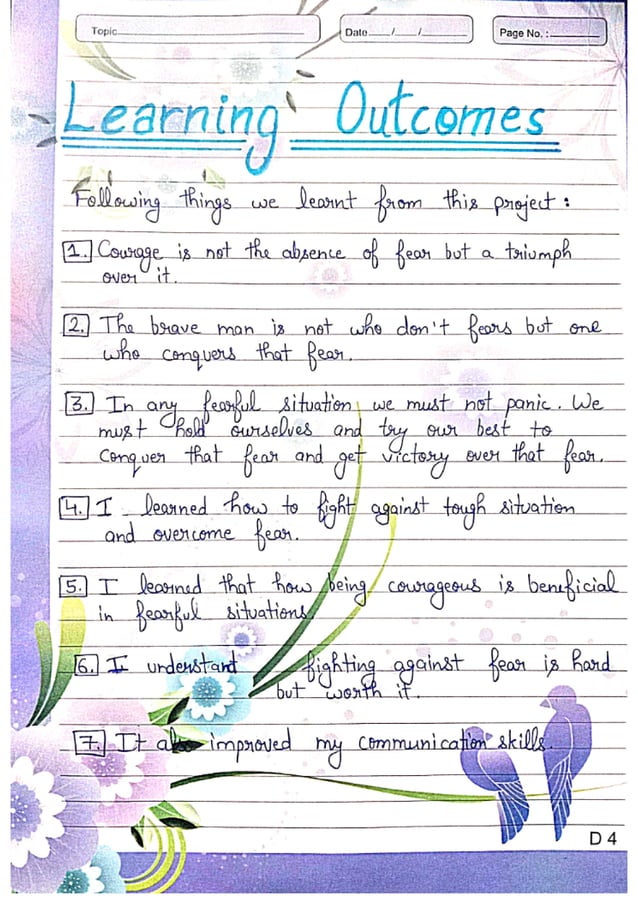 Topic
Date / /
Page No. :
Learning Outcomes
Following things we learnt from this project :
1. Courage is not the absence of fear but a triumph
over it.
2. The brave man is not who don't fears but one
who conquers that fear.
3. In any fearful situation we must not panic. We
must hold ourselves and try our best to
conquer that fear and get victory over that fear.
4. I learned how to fight against tough situation
and overcome fear.
5. I learned that how being courageous is beneficial
in fearful situations.
6. I understant fighting against fear is hard
but worth it.
7. It also improved my communication skills.
D 4